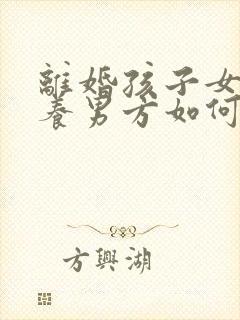 離婚孩子女
養男方如何
方興湖